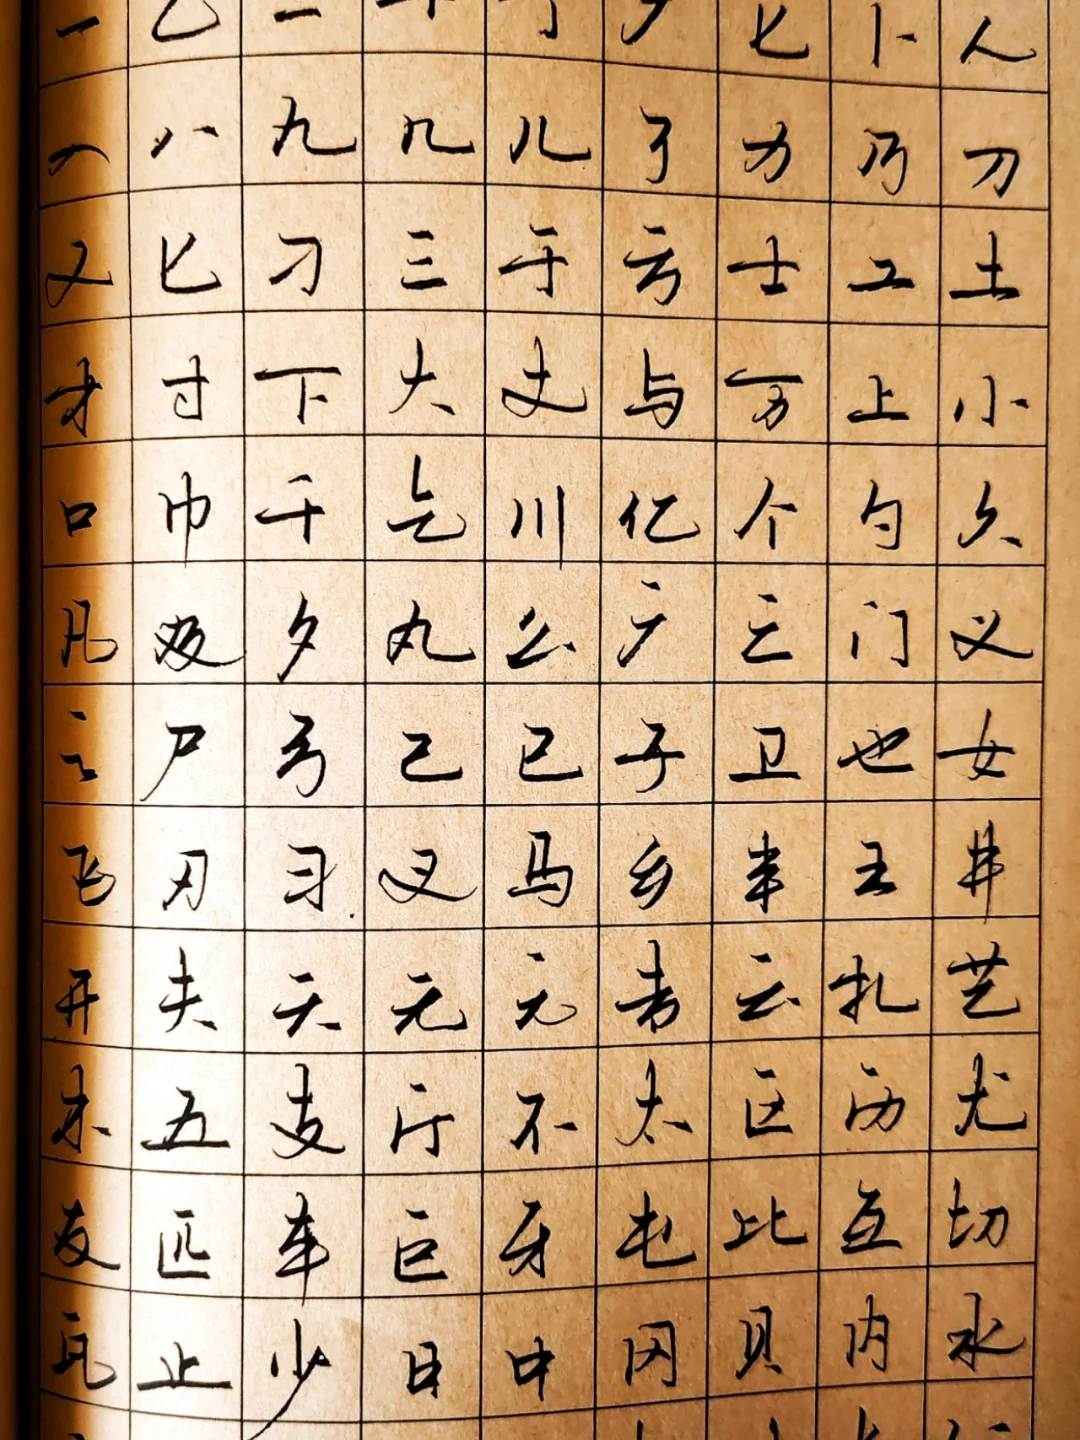 一乙二十丁厂七卜人
入八九几儿了力乃刀
又匕刁三于亏士工土
才寸下大丈与万上小
口巾千乞川亿个勺久
凡及夕丸么广亡门义
之尸弓己已子卫也女
飞刃习叉马乡丰王井
开夫天无元专云扎艺
木五支厅不太区历尤
友匹车巨牙屯比互切
瓦止少日中冈贝内水